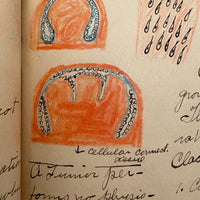 ↓ cellular conned.
tissue
A Tumor per-
forms no physio-
ot
grou
Clas
1. C